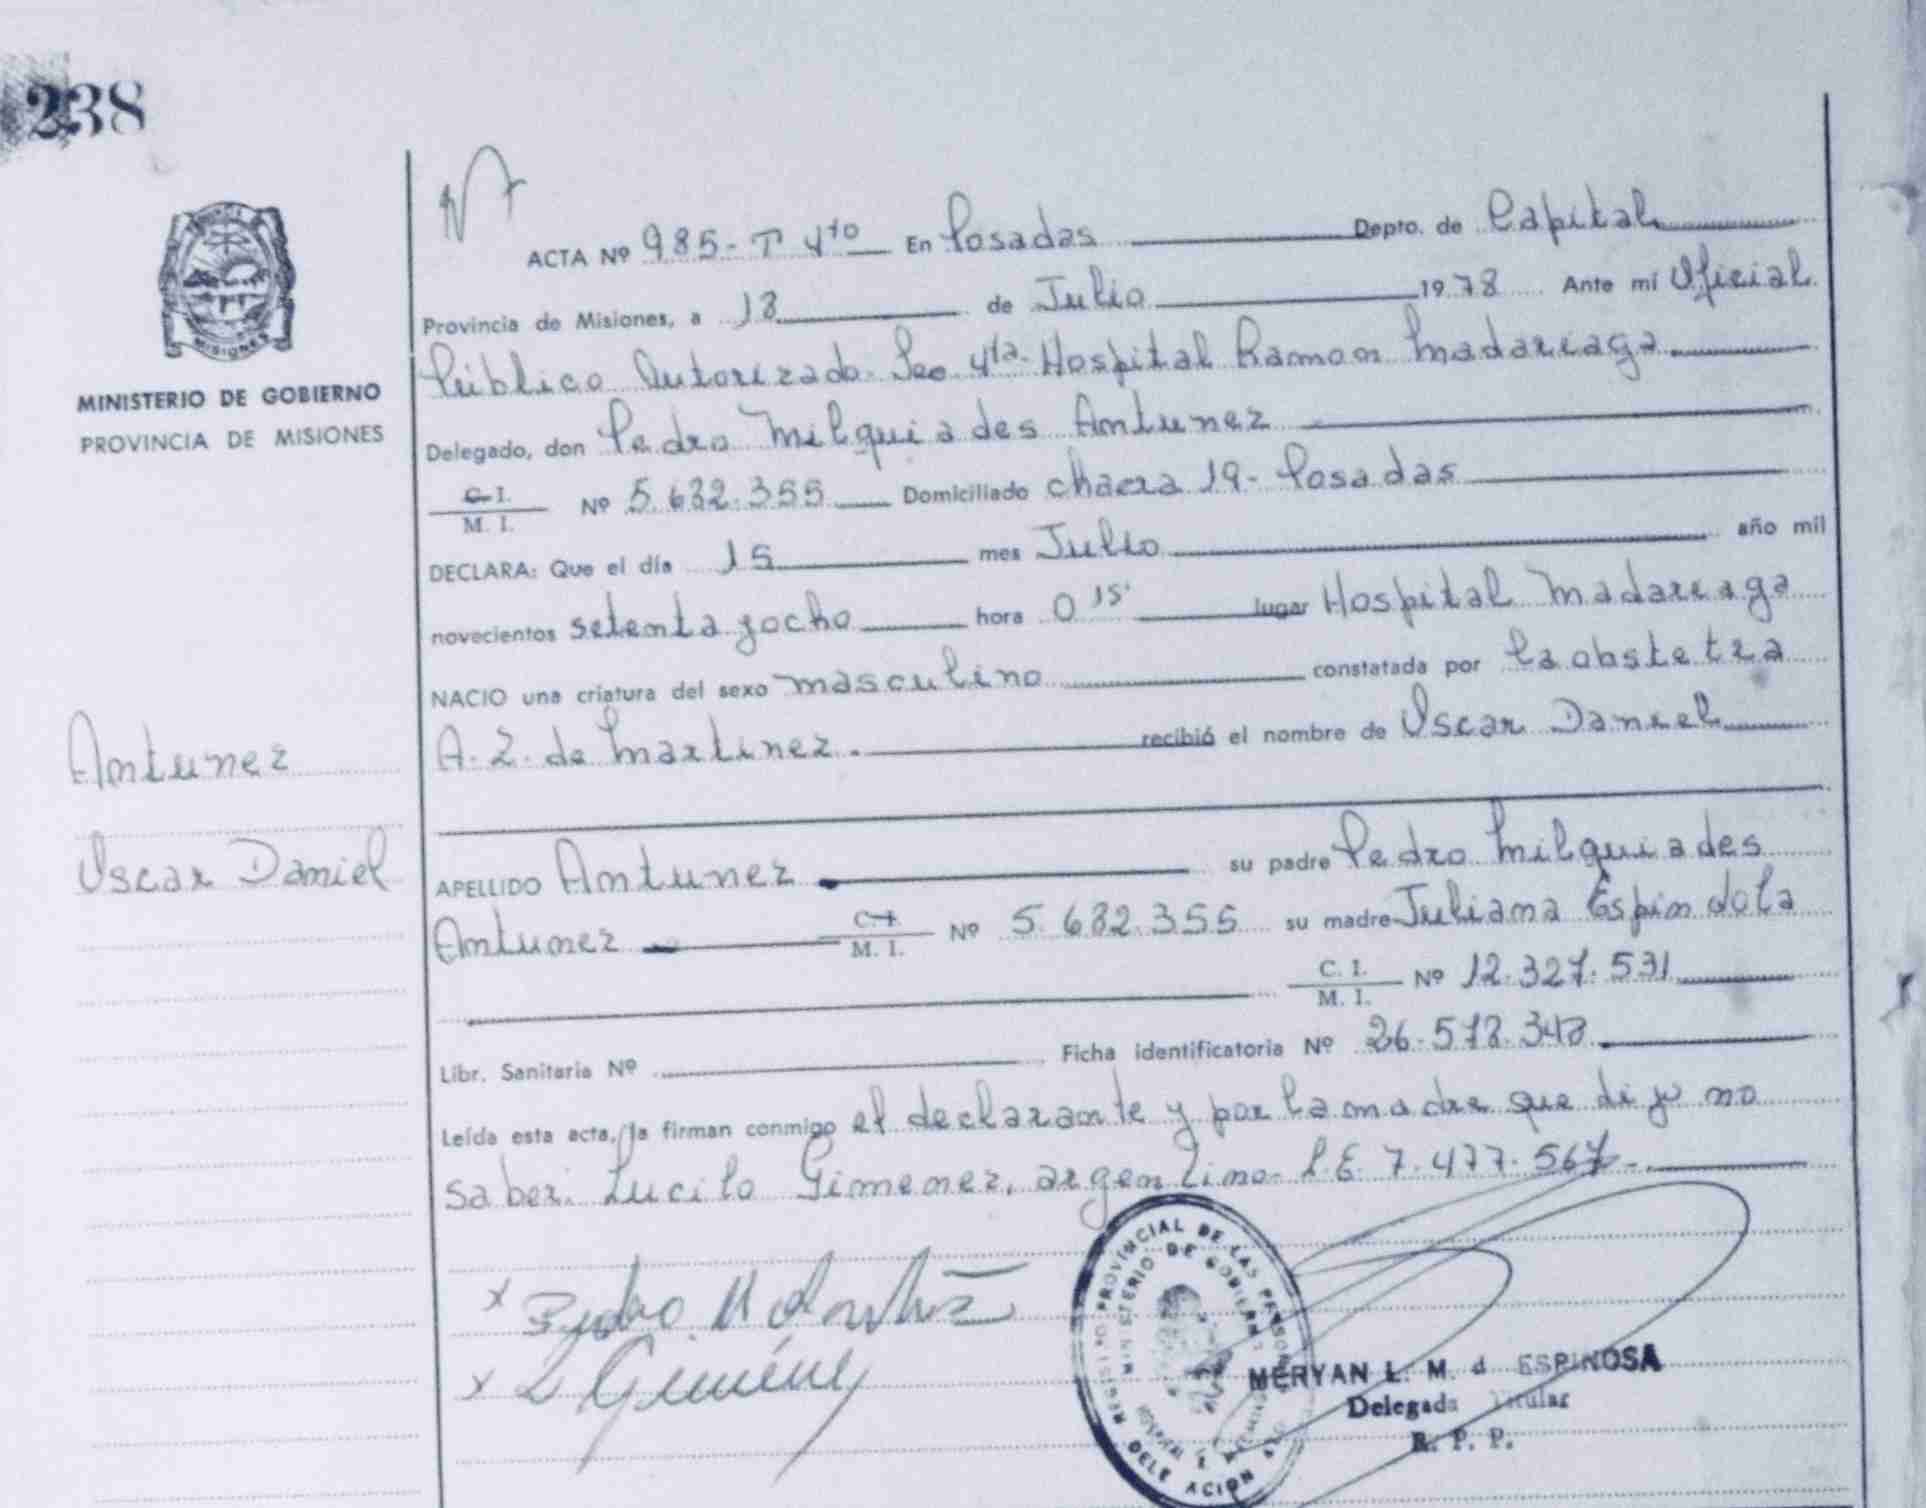 238
MISIONES
MINISTERIO DE GOBIERNO
PROVINCIA DE MISIONES
Antunez
Oscar Daniel
ACTA Nº 985- T 4to En Posadas Depto. de Capital
Provincia de Misiones, a 18 de Julio 1978 Ante mí Oficial
Público Autorizado Sec 4ta. Hospital Ramon Madariaga
Delegado, don Pedro Milquiades Antunez
C. I. / M. I. Nº 5.632.355 Domiciliado chacra 19- Posadas
DECLARA: Que el día 15 mes Julio año mil
novecientos setenta y ocho hora 0 15' lugar Hospital Madariaga
NACIO una criatura del sexo masculino constatada por la obstetra
A. Z. de Martinez. recibió el nombre de Oscar Daniel
APELLIDO Antunez su padre Pedro Milquiades
Antunez C. I. / M. I. Nº 5.632.355 su madre Juliana Espindola
C. I. / M. I. Nº 12.327.531
Libr. Sanitaria Nº Ficha identificatoria Nº 26.578.348
Leída esta acta, la firman conmigo el declarante y por la madre que dijo no
saber. Lucilo Gimenez, argentino- L.E. 7.477.567-
x Pedro M Antunez
x L Giménez
REGISTRO PROVINCIAL DE LAS PERSONAS
MINISTERIO DE GOBIERNO
MERYAN L. M. d ESPINOSA
Delegada Titular
R. P. P.